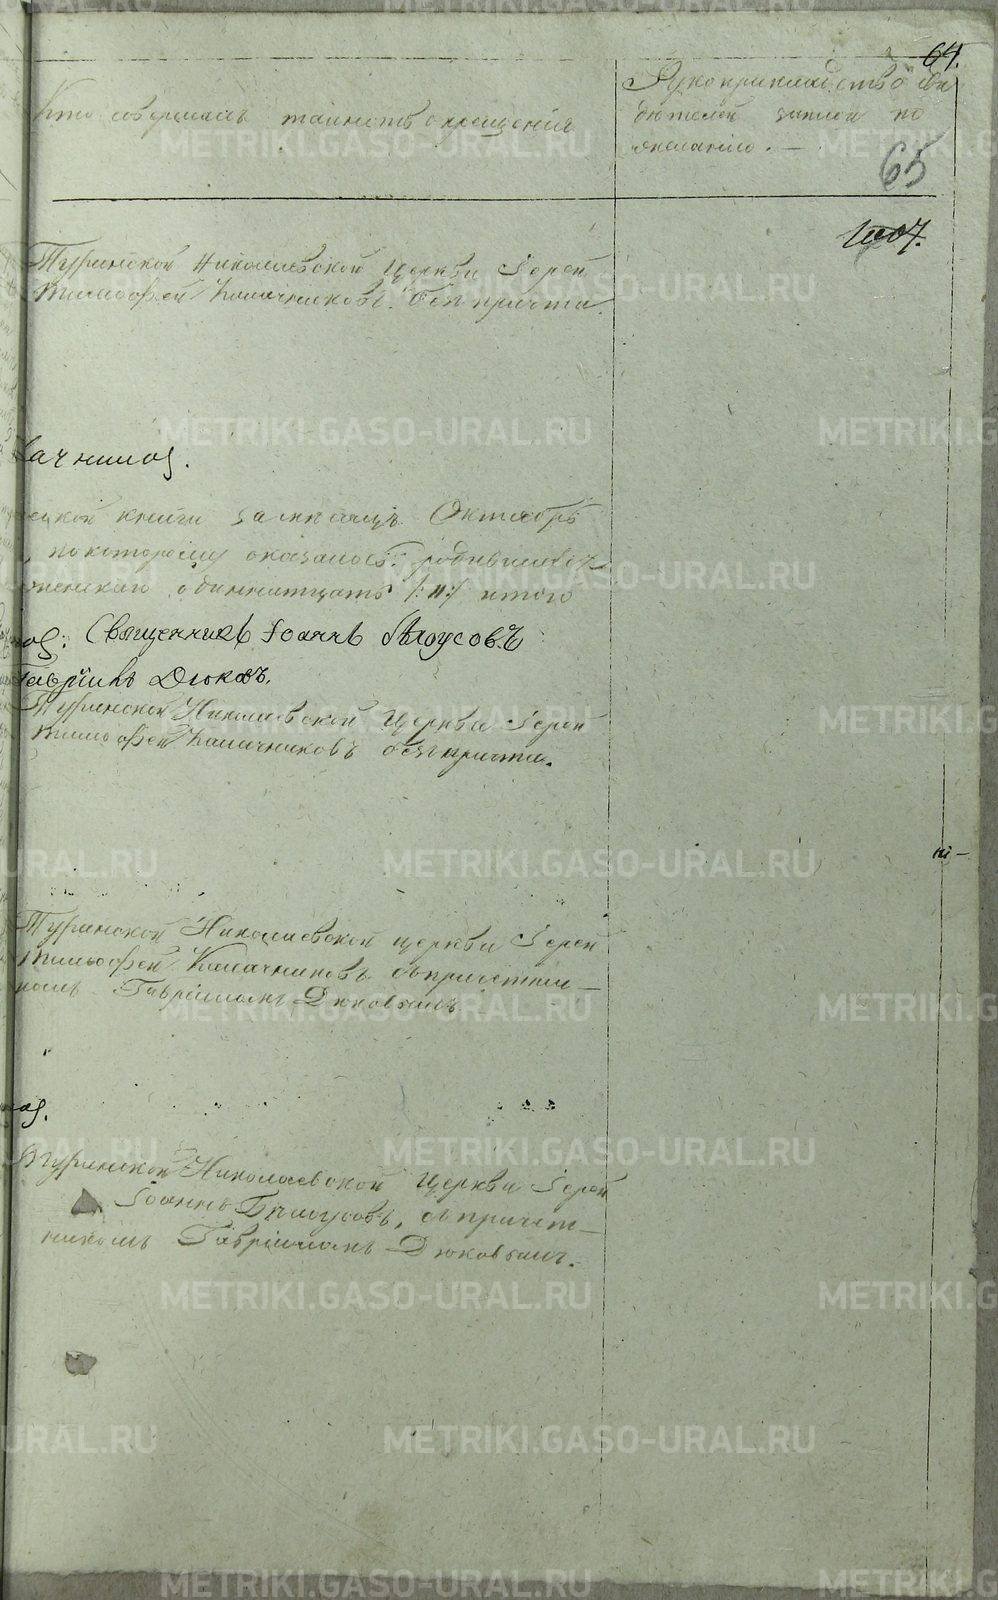 64.
Кто совершалъ таинство крещенія
Рукоприкладство сви
дѣтелей записи по
желанію. —
65
Туринской Николаевской Церкви Іерей
Тимофей Калачниковъ. безъ причта.
Октябрь
по которому оказалось: родившихся
одиннатцать /:11:/ итого
Священникъ Іоаннъ Бѣлоусовъ
Гавріилъ Дюковъ.
Туринской Николаевской Церкви Іерей
Тимофей Калачниковъ безъ причта.
Туринской Николаевской церкви Іерей
Тимофей Калачниковъ съ причетни—
комъ Гавріиломъ Дюковымъ
Туринской Николаевской Церкви Іерей
Іоаннъ Бѣлоусовъ, съ причет—
никомъ Гавріиломъ Дюковымъ.
METRIKI.GASO-URAL.RU